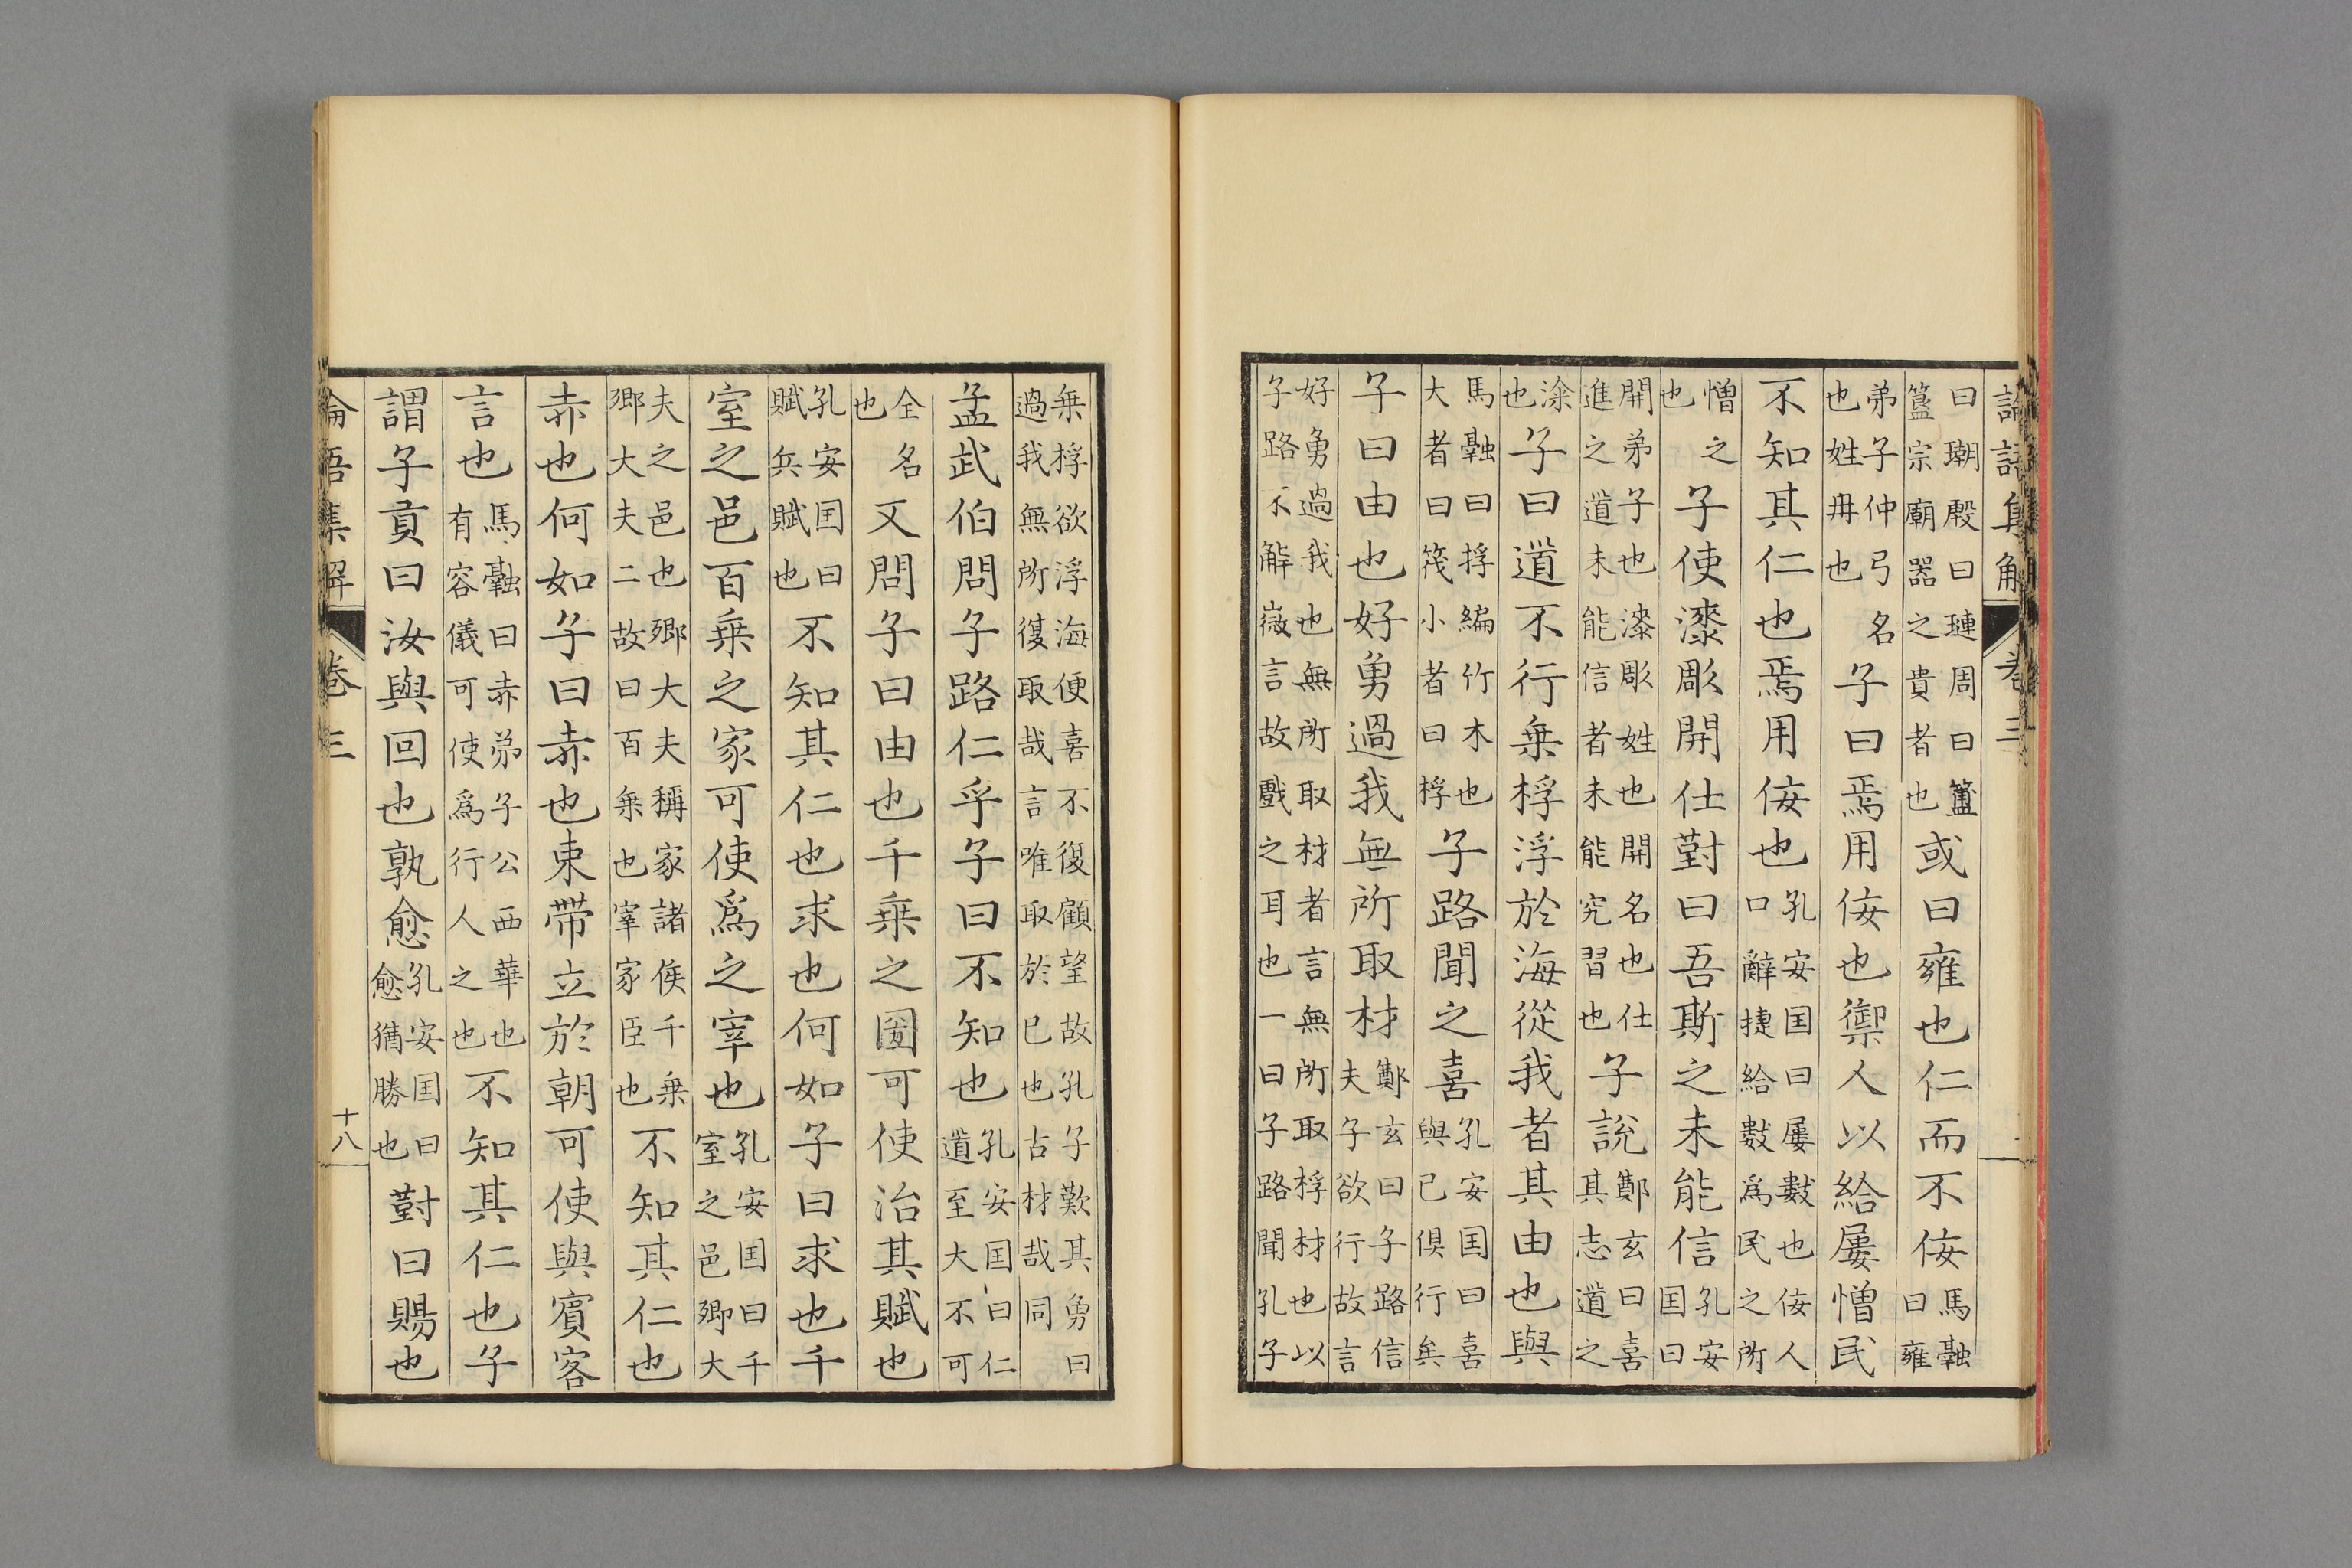 論語集解 卷三
曰瑚殷曰璉周曰簠簋宗廟器之貴者也或曰雍也仁而不佞馬融曰雍
弟子仲弓名也姓冉也子曰焉用佞也禦人以給屢憎民
不知其仁也焉用佞也孔安囯曰屢數也佞人口辭捷給數爲民之所
憎之也子使漆彫開仕對曰吾斯之未能信孔安囯曰
開弟子也漆彫姓也開名也仕進之道未能信者未能究習也子說鄭玄曰喜其志道之
深也子曰道不行乗桴浮於海從我者其由也與
馬融曰桴編竹木也大者曰筏小者曰桴子路聞之喜孔安囯曰喜與己俱行矣
子曰由也好勇過我無所取材鄭玄曰子路信夫子欲行故言
好勇過我也無所取材者言無所取桴材也以子路不解微言故戲之耳也一曰子路聞孔子
乗桴欲浮海便喜不復顧望故孔子歎其勇曰過我無所復取哉言唯取於己也古材哉同
孟武伯問子路仁乎子曰不知也孔安囯曰仁道至大不可
全名也又問子曰由也千乗之國可使治其賦也
孔安囯曰賦兵賦也不知其仁也求也何如子曰求也千
室之邑百乗之家可使爲之宰也孔安囯曰千室之邑卿大
夫之邑也卿大夫稱家諸侯千乗卿大夫二故曰百乗也宰家臣也不知其仁也
赤也何如子曰赤也束帶立於朝可使與賓客
言也馬融曰赤弟子公西華也有容儀可使爲行人之也不知其仁也子
謂子貢曰汝與回也孰愈孔安囯曰愈猶勝也對曰賜也
論語集解 卷三 十八